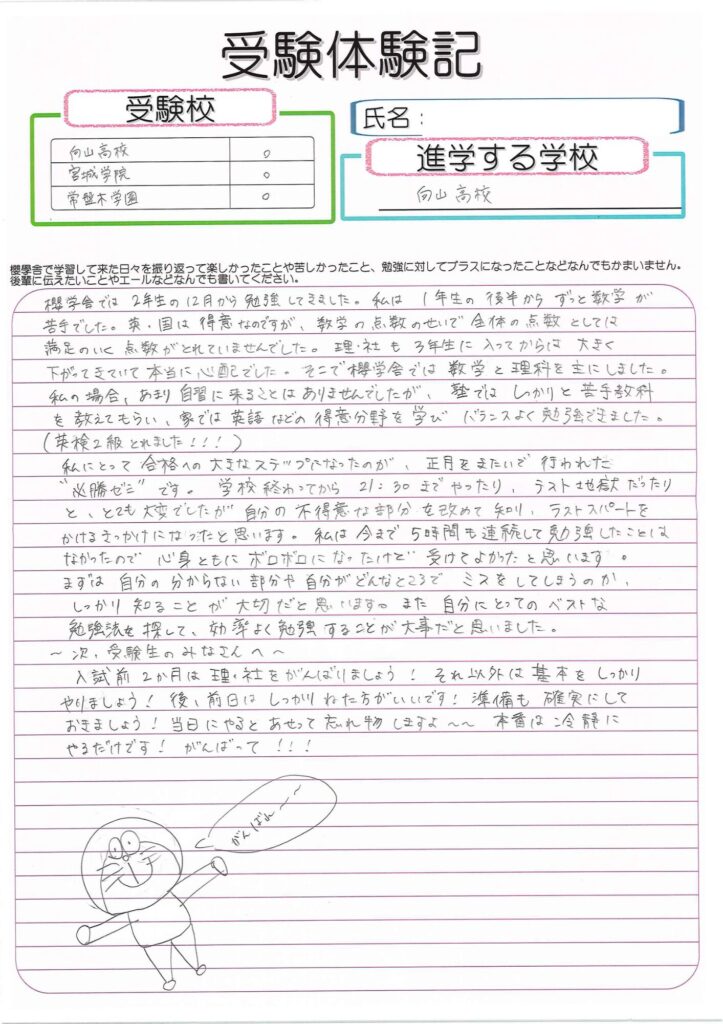 受験体験記
受験校
向山高校 ○
宮城学院 ○
常盤木学園 ○
氏名：
進学する学校
向山高校
櫻學舎で学習して来た日々を振り返って楽しかったことや苦しかったこと、勉強に対してプラスになったことなどなんでもかまいません。
後輩に伝えたいことやエールなどなんでも書いてください。
櫻学舎では2年生の12月から勉強してきました。私は1年生の後半からずっと数学が
苦手でした。英・国は得意なのですが、数学の点数のせいで全体の点数としては
満足のいく点数がとれていませんでした。理・社も3年生に入ってからは大きく
下がってきていて本当に心配でした。そこで櫻学舎では数学と理科を主にしました。
私の場合、あまり自習に来ることはありませんでしたが、塾ではしっかりと苦手教科
を教えてもらい、家では英語などの得意分野を学びバランスよく勉強できました。
(英検2級とれました！！！)
私にとって合格への大きなステップになったのが、正月をまたいで行われた
"必勝ゼミ"です。学校終わってから21:30までやったり、ラスト地獄だったり
と、とても大変でしたが自分の不得意な部分を改めて知り、ラストスパートを
かけるきっかけになったと思います。私は今まで5時間も連続して勉強したことは
なかったので心身ともにボロボロになったけど受けてよかったと思います。
まずは自分の分からない部分や自分がどんなところでミスをしてしまうのか、
しっかり知ることが大切だと思います。また自分にとってのベストな
勉強法を探して、効率よく勉強することが大事だと思いました。
～次、受験生のみなさんへ～
入試前2か月は理・社をがんばりましょう！それ以外は基本をしっかり
やりましょう！後、前日はしっかりねた方がいいです！準備も確実にして
おきましょう！当日にやるとあせって忘れ物しますよ～～ 本番は冷静に
やるだけです！がんばって！！！
がんばれ～～